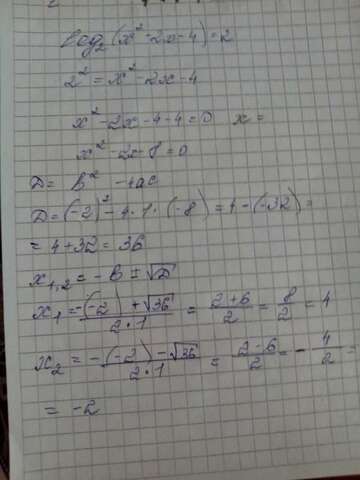 log₂(x²-2x-4)=2
2²=x²-2x-4
x²-2x-4-4=0 x=
x²-2x-8=0
D= b² -4ac
D=(-2)²-4·1·(-8)=4-(-32)=
=4+32=36
x₁,₂=-b±√D
x₁=(-(-2)+√36)/(2·1) = (2+6)/2 = 8/2 = 4
x₂ = (-(-2)-√36)/(2·1) = (2-6)/2 = -4/2 =
= -2